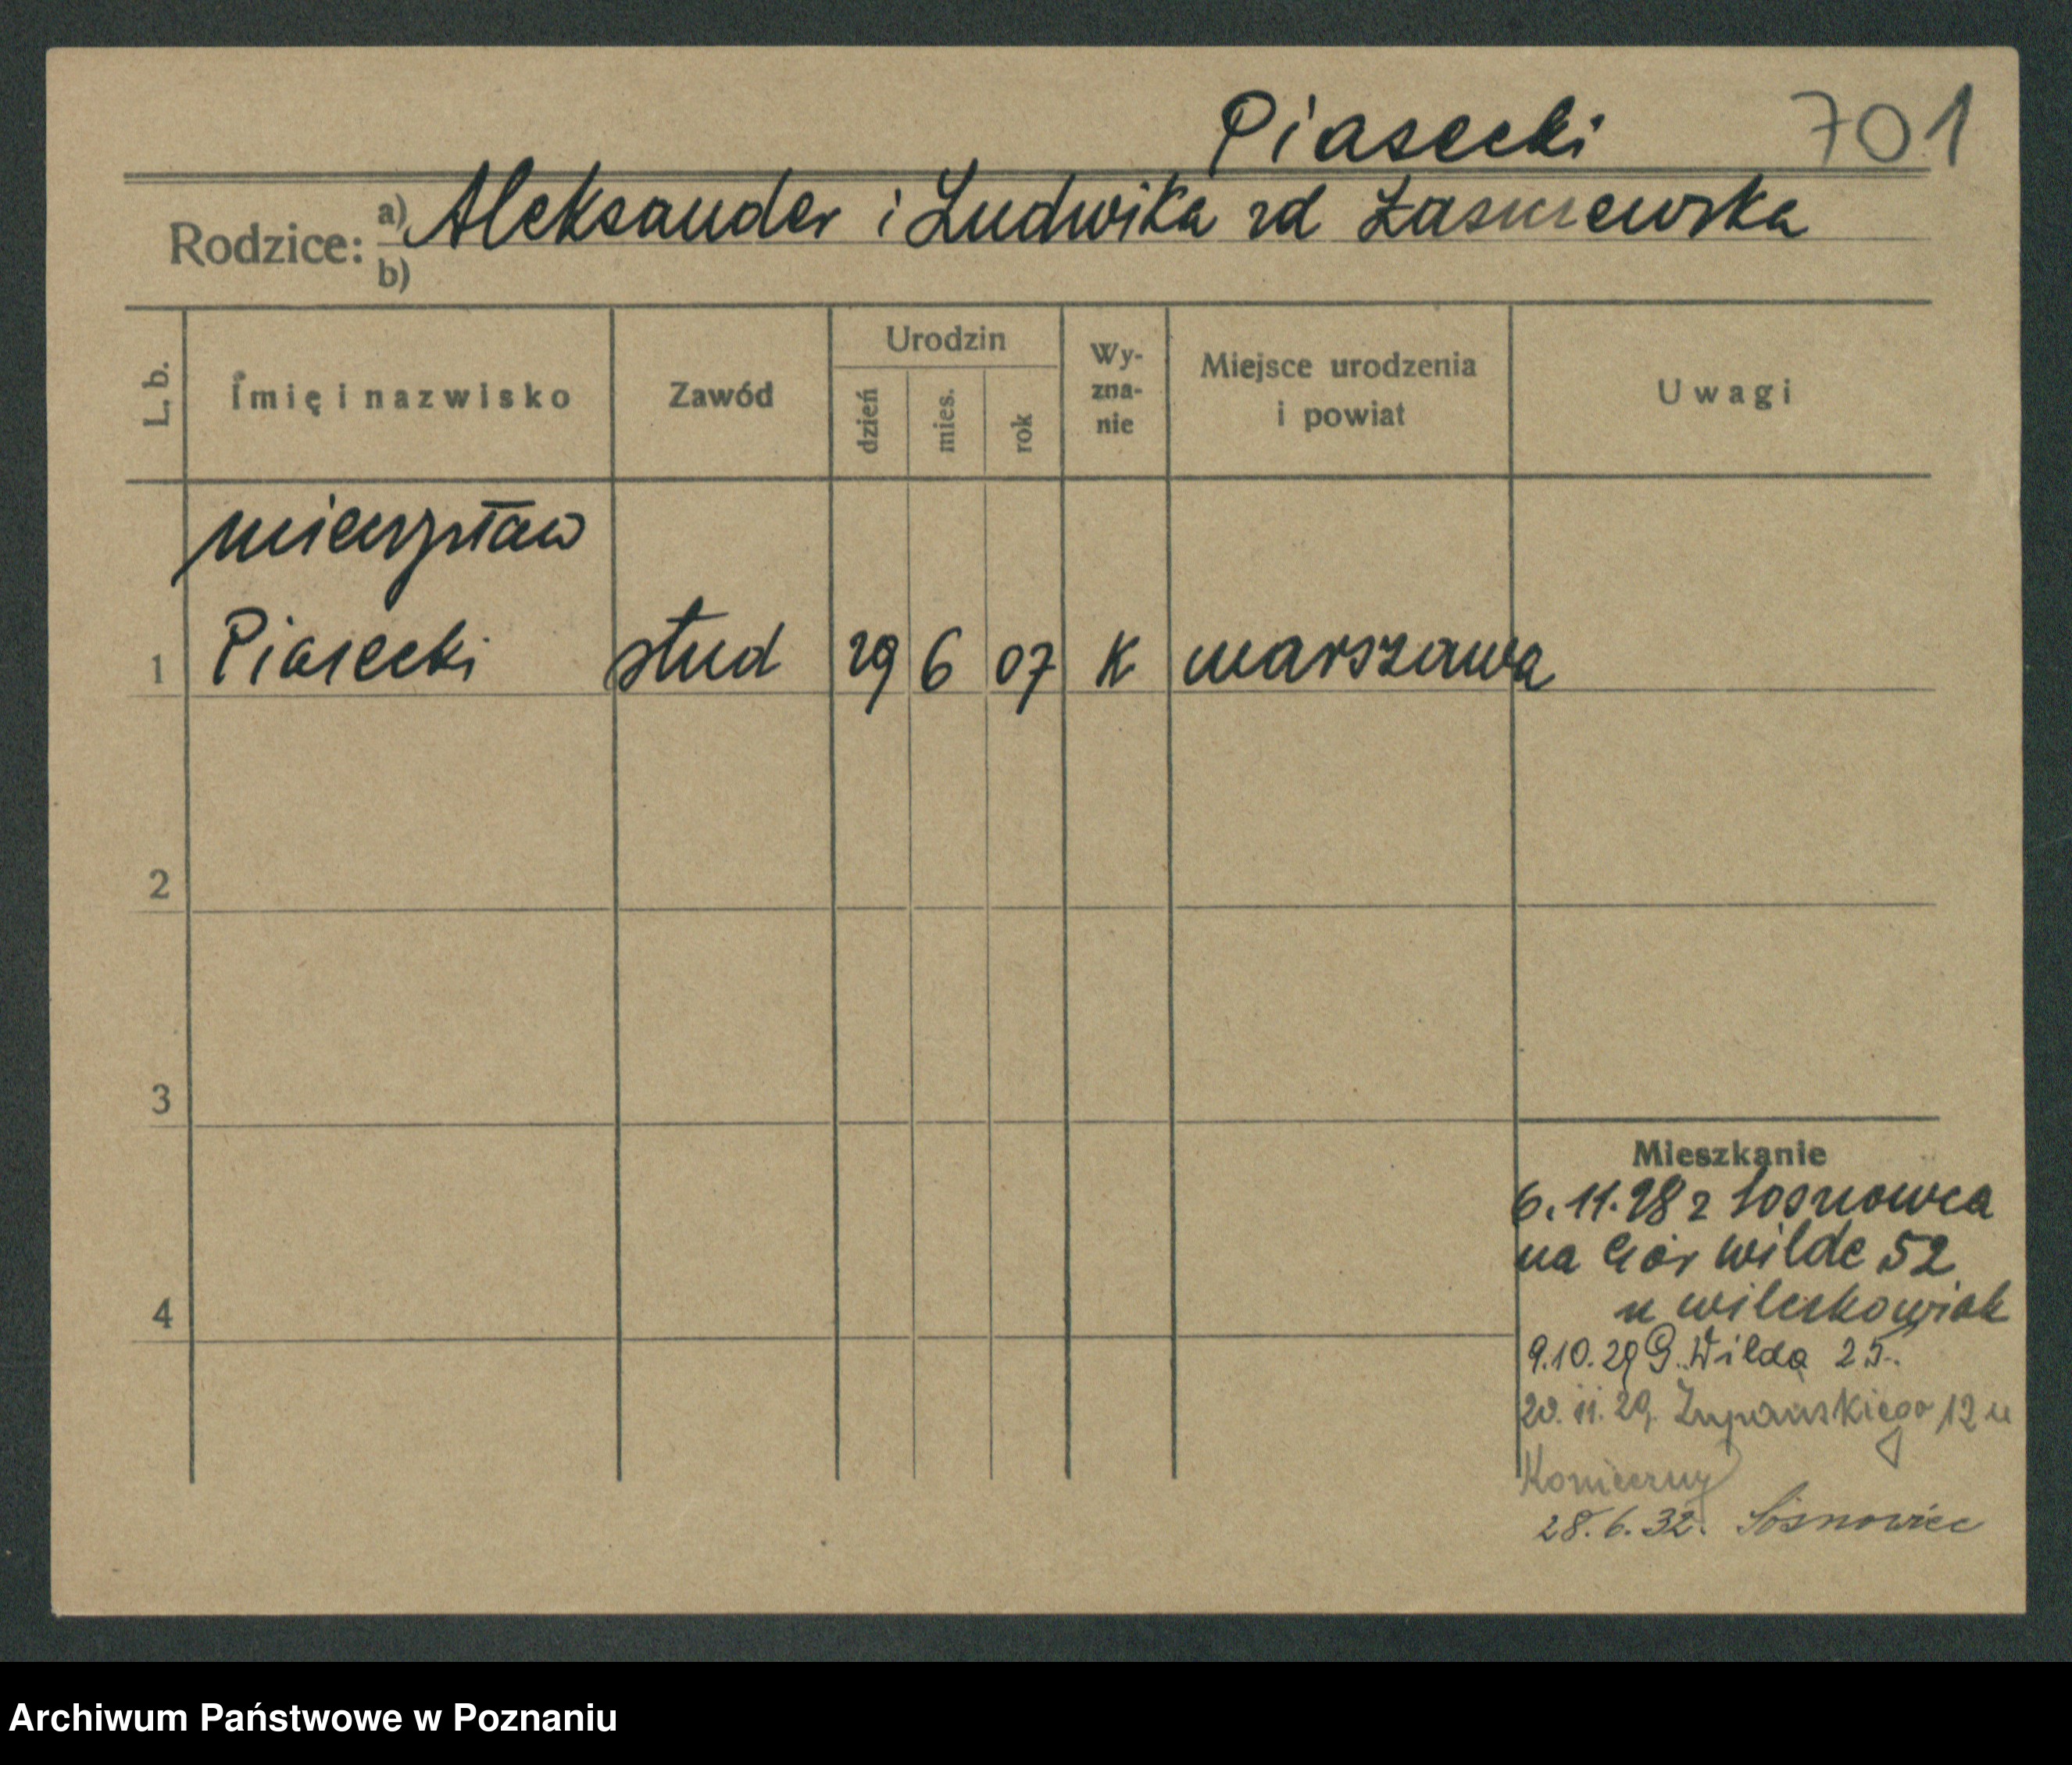 Piasecki 701
Rodzice: a) Aleksander i Ludwika zd
b)
L. b.
Imię i nazwisko
Zawód
Urodzin
dzień
mies.
rok
Wy-
zna-
nie
Miejsce urodzenia
i powiat
Uwagi
Mieczysław
1 Piasecki stud 29 6 07 K Warszawa
2
3
4
Mieszkanie
6.11.28 z Sosnowca
na Gór Wilde 52
u
9.10.29 G. Wilda 25.
20.11.29. Żupańskiego 12 u
Konieczny
28.6.32. Sosnowiec
Archiwum Państwowe w Poznaniu